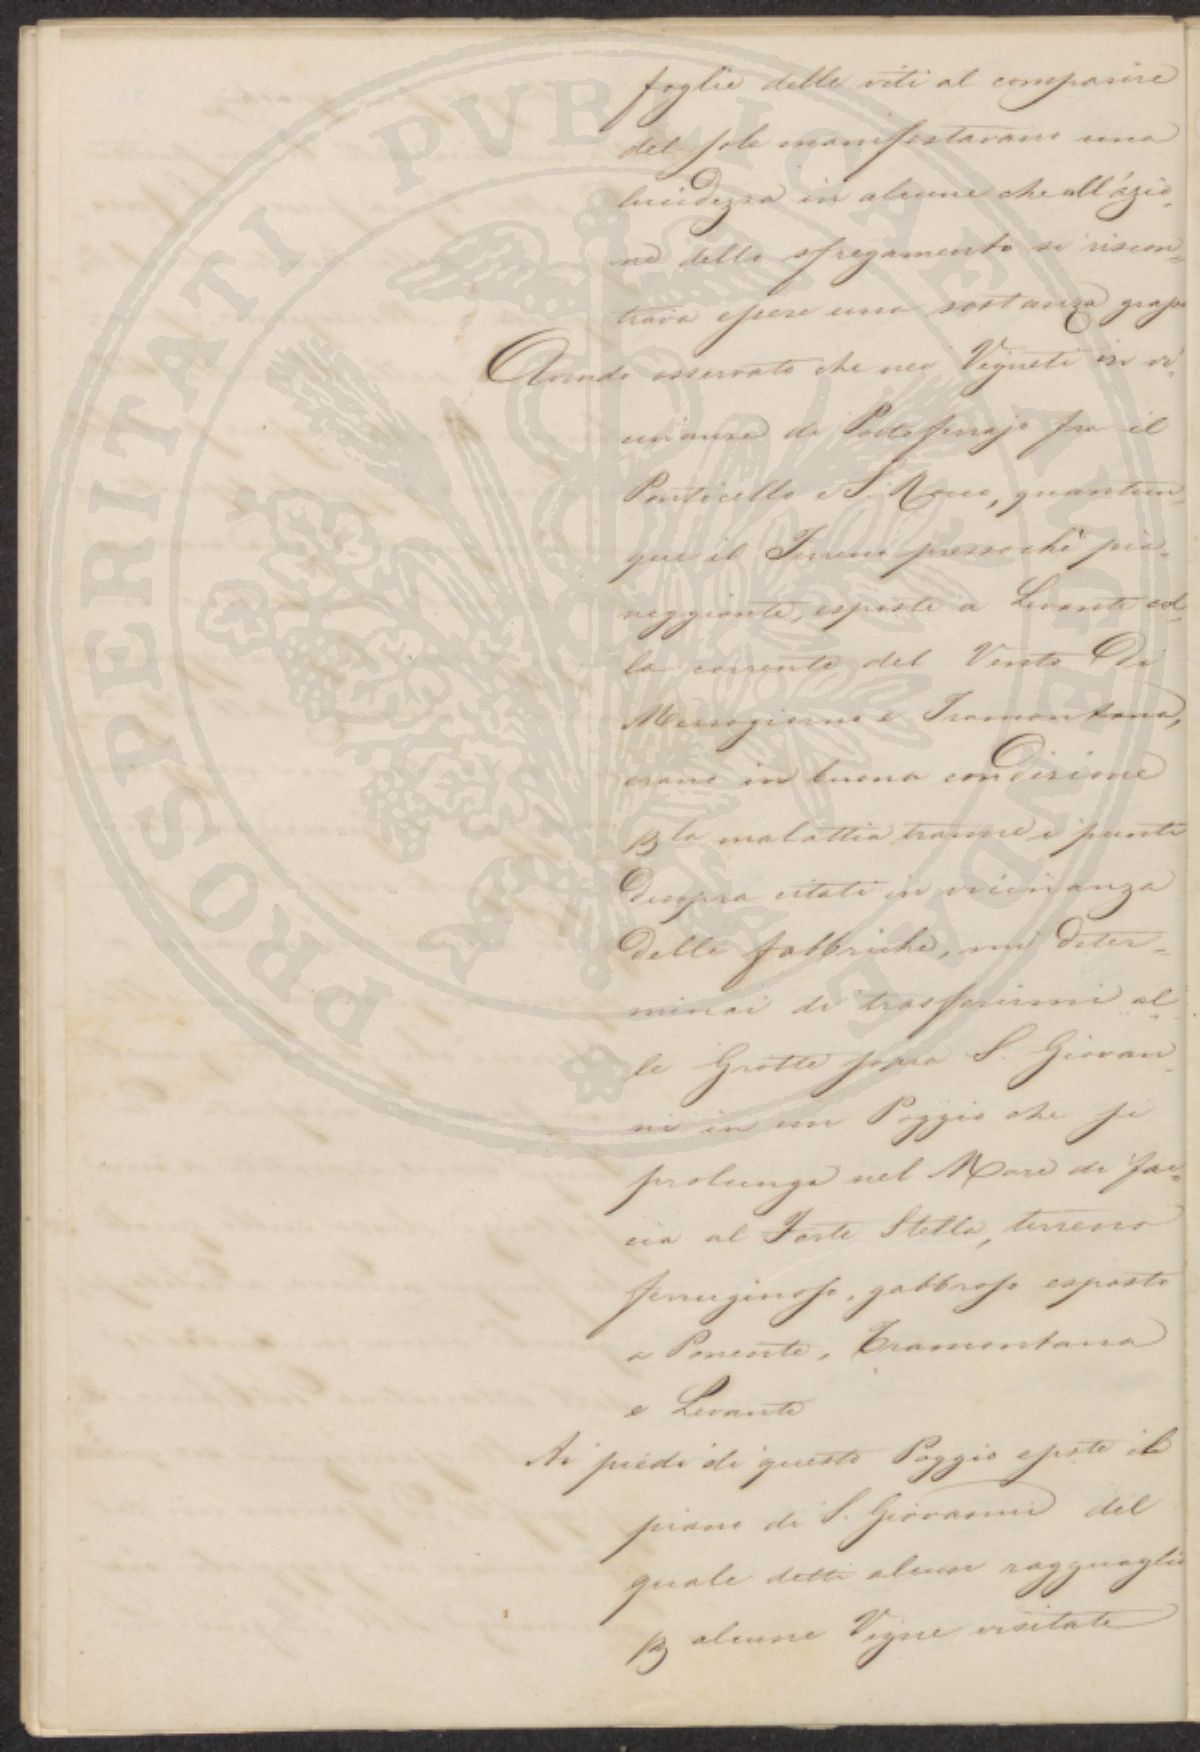 foglie delle viti al comparire
del sole manifestavano una
lucidezza in alcune che all'azio-
ne dello sfregamento si riscon-
trava essere una sostanza grassa
Avendo osservato che nei Vigneti in vi-
cinanza di Portoferrajo fra il
Ponticello e S. Rocco, quantun-
que il Terreno pressochè pia-
neggiante, esposte a Levante col-
la corrente del Vento Di
Mezzogiorno e Tramontana,
erano in buona condizione
p la malattia tranne i punti
Disopra citati in vicinanza
Delle fabbriche, mi Deter-
minai di trasferirmi al-
le Grotte sopra S. Giovan-
ni in un Poggio che si
prolunga nel Mare di fac-
cia al Forte Stella, terreno
ferruginoso, gabbroso esposto
a Ponente, Tramontana
e Levante
Ai piedi di questo Poggio esiste il
piano di S. Giovanni del
quale detti alcun ragguaglio
p alcune Vigne visitate
PROSPERITATI PUBLICAE AUGENDAE